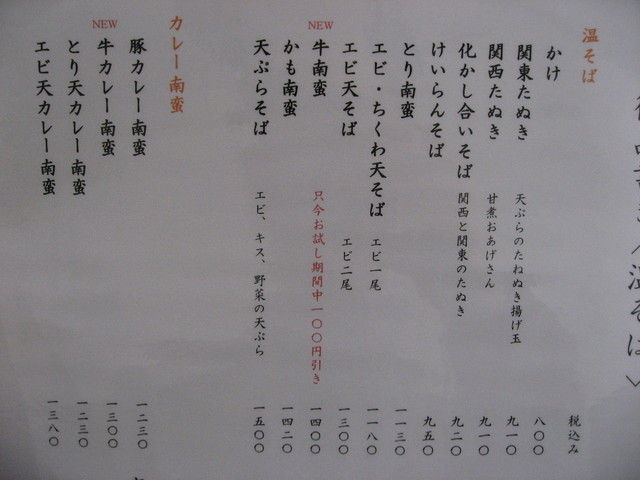 〈温そば〉
温そば 税込み
かけ 八〇〇
関東たぬき 天ぷらのたねぬき揚げ玉 九一〇
関西たぬき 甘煮おあげさん 九一〇
化かし合いそば 関西と関東のたぬき 九二〇
けいらんそば 九五〇
とり南蛮 一一三〇
エビ・ちくわ天そば エビ一尾 一一八〇
エビ天そば エビ二尾 一三〇〇
NEW
牛南蛮 只今お試し期間中一〇〇円引き 一四〇〇
かも南蛮 一四二〇
天ぷらそば エビ、キス、野菜の天ぷら 一五〇〇
カレー南蛮
豚カレー南蛮 一二三〇
NEW
牛カレー南蛮 一三〇〇
とり天カレー南蛮 一二三〇
エビ天カレー南蛮 一三八〇